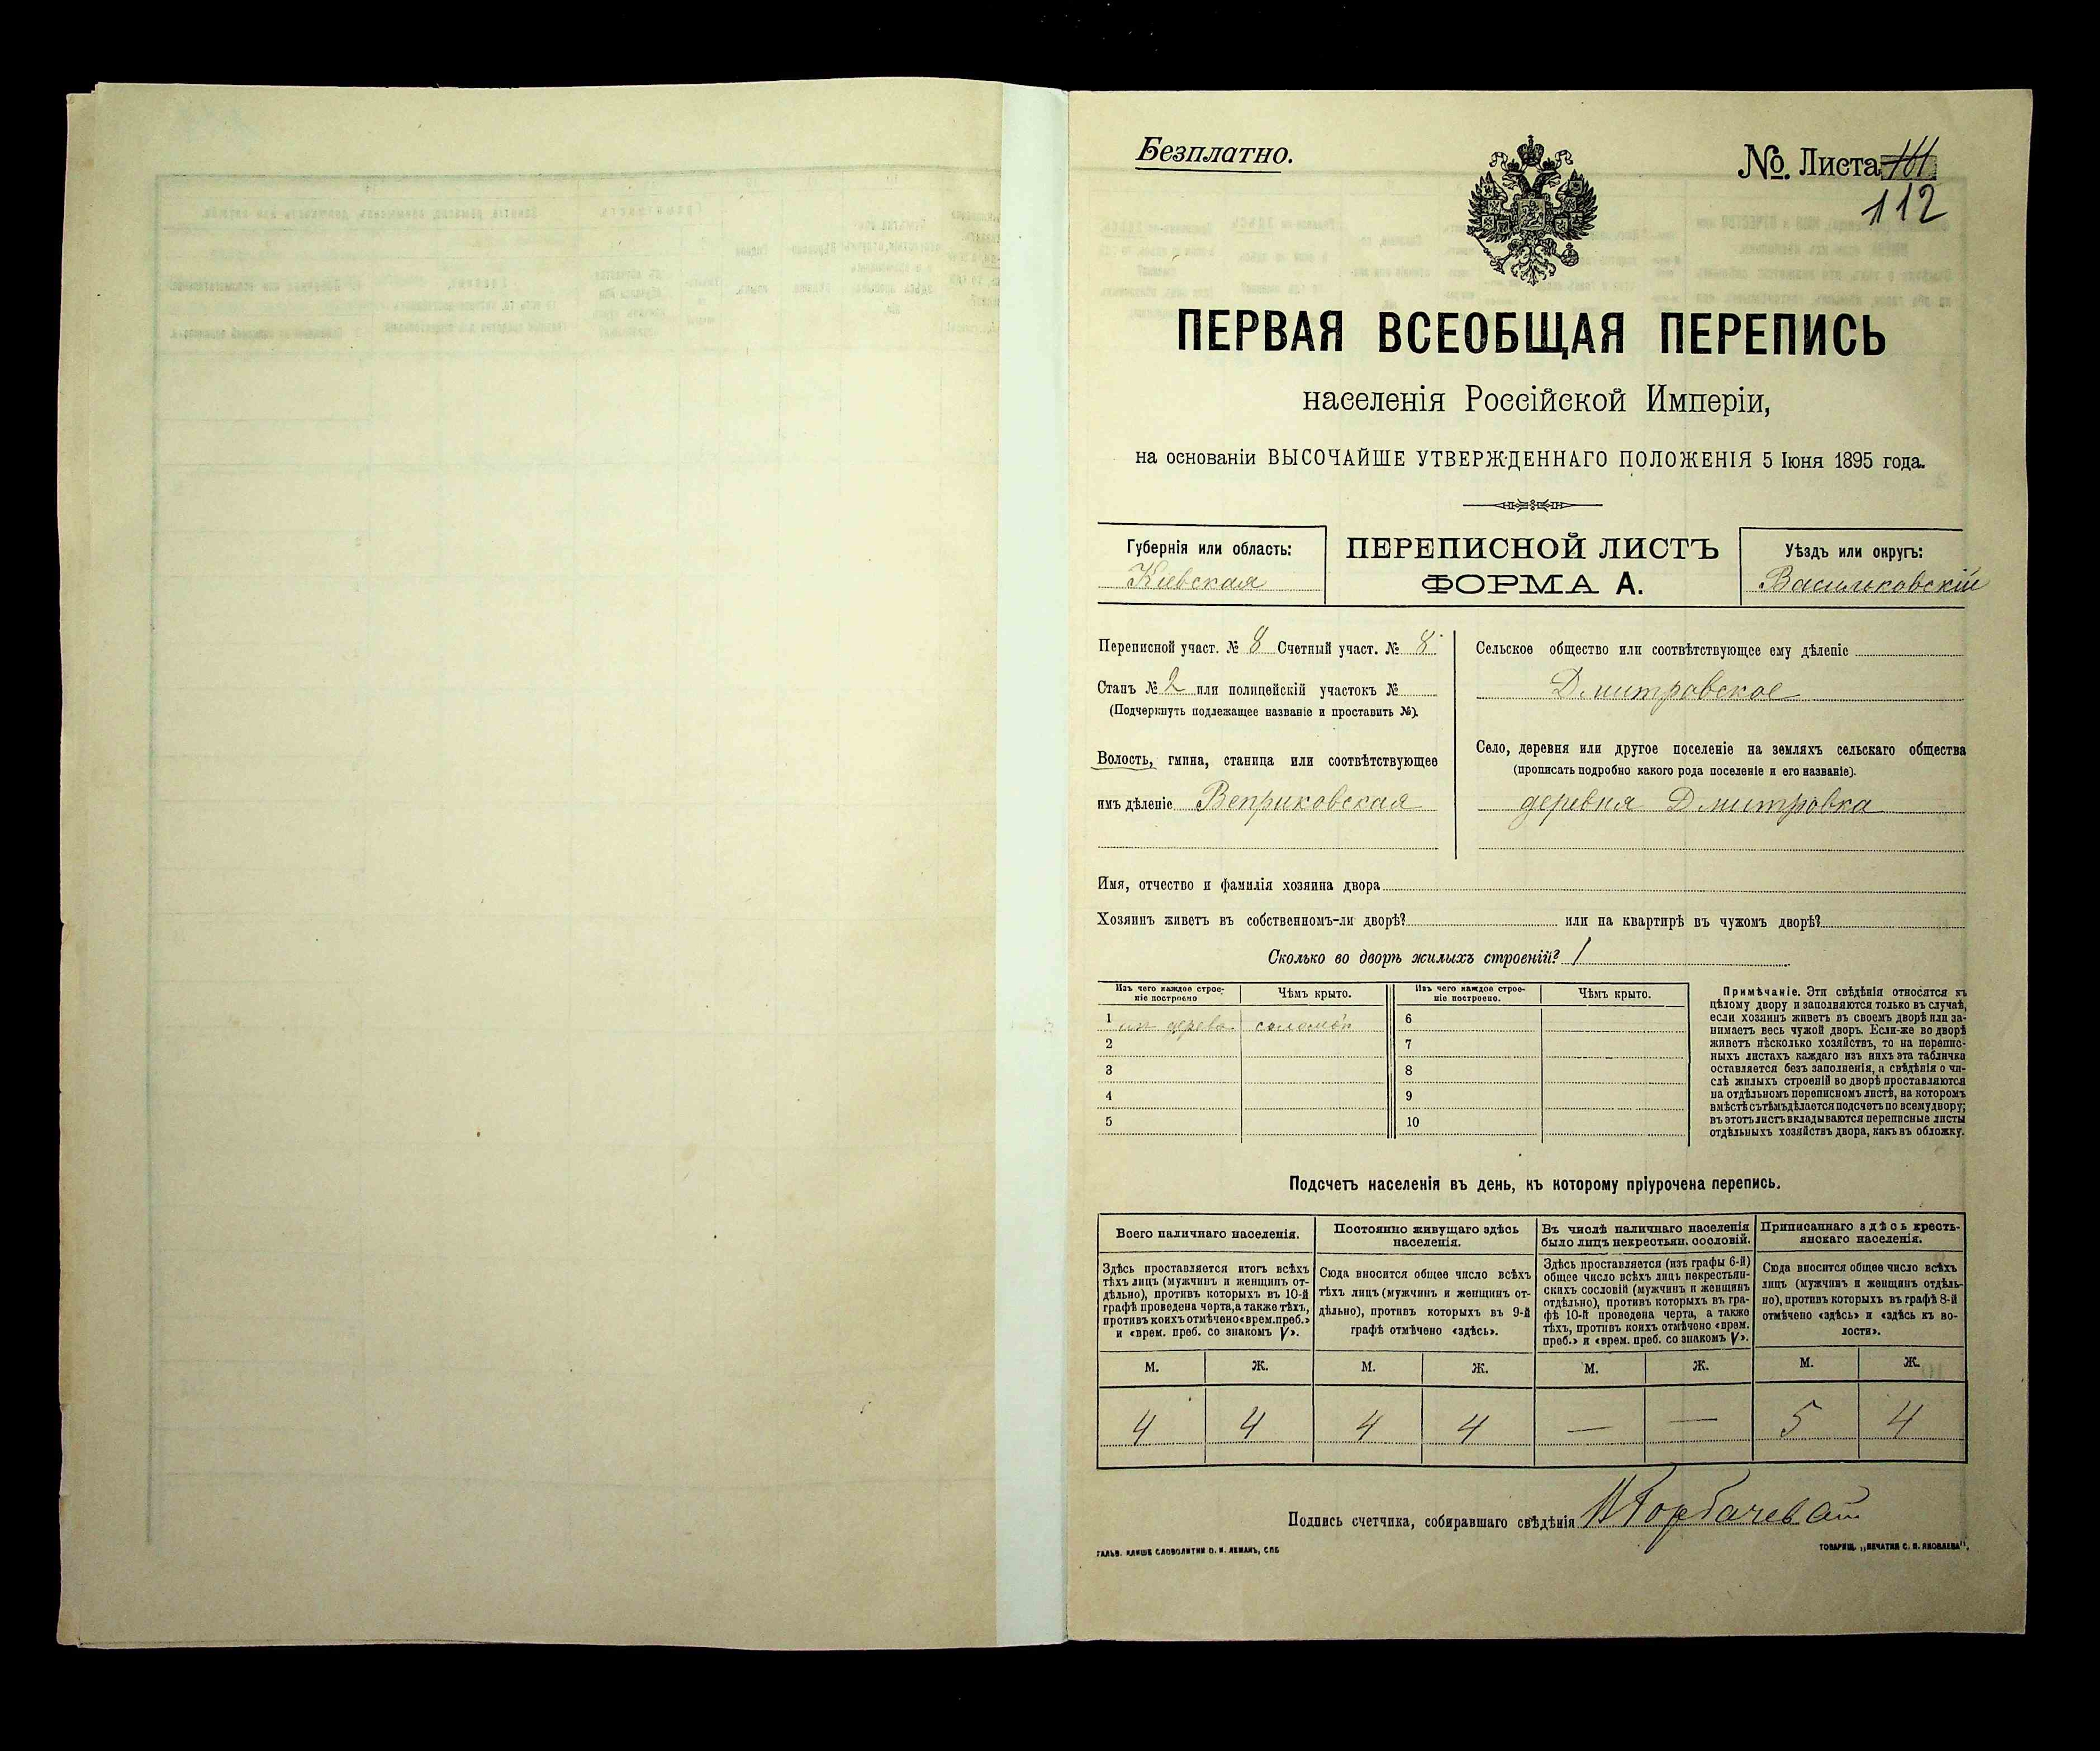 Безплатно.
№ Листа
112
ПЕРВАЯ ВСЕОБЩАЯ ПЕРЕПИСЬ
населенія Россійской Имперіи,
на основаніи ВЫСОЧАЙШЕ УТВЕРЖДЕННАГО ПОЛОЖЕНІЯ 5 Іюня 1895 года.
Губернія или область:
Кіевская
ПЕРЕПИСНОЙ ЛИСТЪ
ФОРМА А.
Уѣздъ или округъ:
Васильковскій
Переписной участ. № 8 Счетный участ. № 8
Станъ № 2 или полицейскій участокъ №
(Подчеркнуть подлежащее названіе и проставить №).
Волость, гмина, станица или соотвѣтствующее
имъ дѣленіе Веприковская
Сельское общество или соотвѣтствующее ему дѣленіе
Дмитровское
Село, деревня или другое поселеніе на земляхъ сельскаго общества
(прописать подробно какого рода поселеніе и его названіе).
деревня Дмитровка
Имя, отчество и фамилія хозяина двора
Хозяинъ живетъ въ собственномъ-ли дворѣ? или на квартирѣ въ чужомъ дворѣ?
Сколько во дворѣ жилыхъ строеній? 1
Изъ чего каждое строе-
ніе построено
Чѣмъ крыто.
Изъ чего каждое строе-
ніе построено.
Чѣмъ крыто.
1 из дерева соломой
2
3
4
5
6
7
8
9
10
Примѣчаніе. Эти свѣдѣнія относятся къ
цѣлому двору и заполняются только въ случаѣ,
если хозяинъ живетъ въ своемъ дворѣ или за-
нимаетъ весь чужой дворъ. Если-же во дворѣ
живетъ нѣсколько хозяйствъ, то на перепис-
ныхъ листахъ каждаго изъ нихъ эта табличка
оставляется безъ заполненія, а свѣдѣнія о чи-
слѣ жилыхъ строеній во дворѣ проставляются
на отдѣльномъ переписномъ листѣ, на которомъ
вмѣстѣ съ тѣмъ дѣлается подсчетъ по всему двору;
въ этотъ листъ вкладываются переписные листы
отдѣльныхъ хозяйствъ двора, какъ въ обложку.
Подсчетъ населенія въ день, къ которому пріурочена перепись.
Всего наличнаго населенія.
Постоянно живущаго здѣсь
населенія.
Въ числѣ наличнаго населенія
было лицъ некрестьян. сословій.
Приписаннаго здѣсь кресть-
янскаго населенія.
Здѣсь проставляется итогъ всѣхъ
тѣхъ лицъ (мужчинъ и женщинъ от-
дѣльно), противъ которыхъ въ 10-й
графѣ проведена черта, а также тѣхъ,
противъ коихъ отмѣчено «врем. преб.»
и «врем. преб. со знакомъ V».
Сюда вносится общее число всѣхъ
тѣхъ лицъ (мужчинъ и женщинъ от-
дѣльно), противъ которыхъ въ 9-й
графѣ отмѣчено «здѣсь».
Здѣсь проставляется (изъ графы 6-й)
общее число всѣхъ лицъ некрестьян-
скихъ сословій (мужчинъ и женщинъ
отдѣльно), противъ которыхъ въ гра-
фѣ 10-й проведена черта, а также
тѣхъ, противъ коихъ отмѣчено «врем.
преб.» и «врем. преб. со знакомъ V».
Сюда вносится общее число всѣхъ
лицъ (мужчинъ и женщинъ отдѣль-
но), противъ которыхъ въ графѣ 8-й
отмѣчено «здѣсь» и «здѣсь къ во-
лости».
М. Ж. М. Ж. М. Ж. М. Ж.
4 4 4 4 — — 5 4
Подпись счетчика, собиравшаго свѣдѣнія
ГАЛЬВ. КЛИШЕ СЛОВОЛИТНИ О. И. ЛЕМАНЪ, СПБ
ТОВАРИЩ. „ПЕЧАТНЯ С. П. ЯКОВЛЕВА".